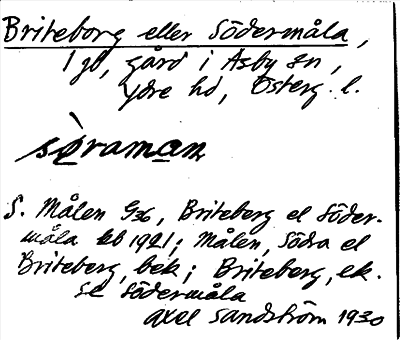 Briteborg eller Södermåla,
1 gd, gård i Asby sn,
Ydre hd, Österg. l.
sø̀raman
S. Målen G36, Briteberg el Söder-
måla kb 1921; Målen, Södra el
Briteberg, bek; Briteberg, ek.
se Södermåla
Axel Sandström 1930